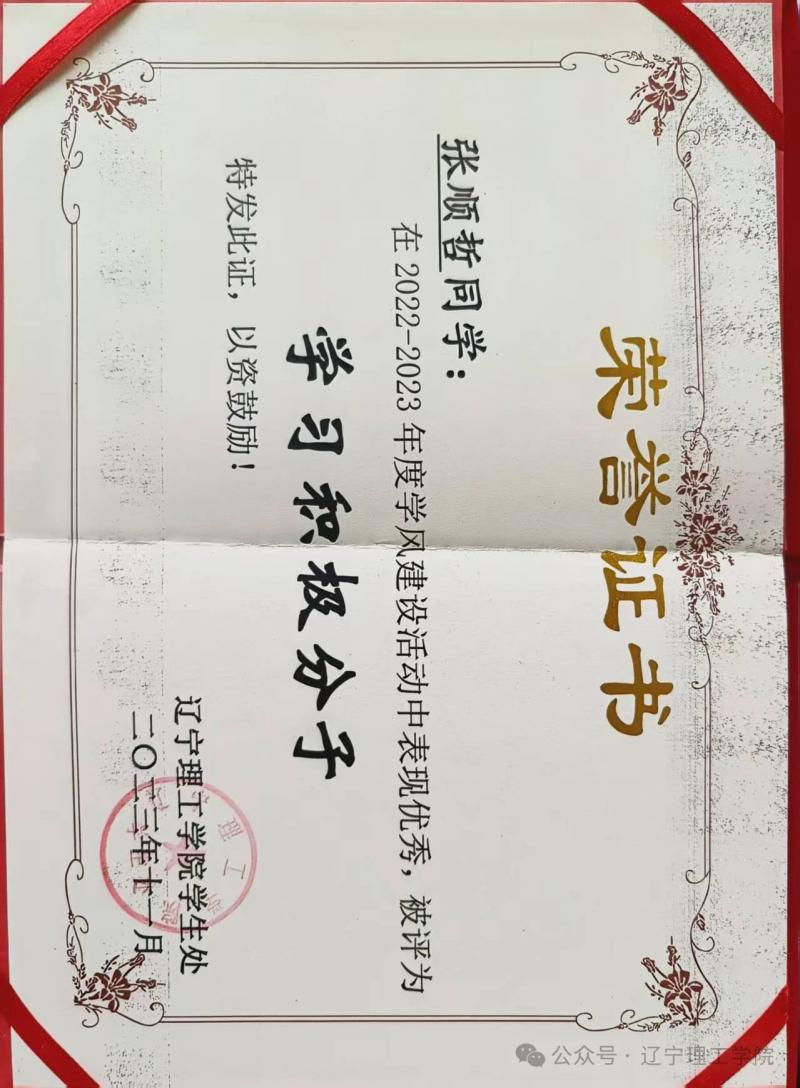 荣誉证书
张顺哲同学：
在2022-2023年度学风建设活动中表现优秀，被评为
学习积极分子
特发此证，以资鼓励！
辽宁理工学院学生处
二〇二三年十一月
公众号·辽宁理工学院